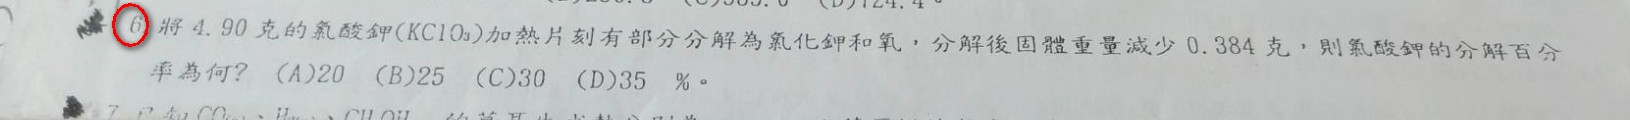 (D)124.4。
6 將 4.90 克的氯酸鉀(KClO₃)加熱片刻有部分分解為氯化鉀和氧，分解後固體重量減少 0.384 克，則氯酸鉀的分解百分
率為何? (A)20 (B)25 (C)30 (D)35 %。